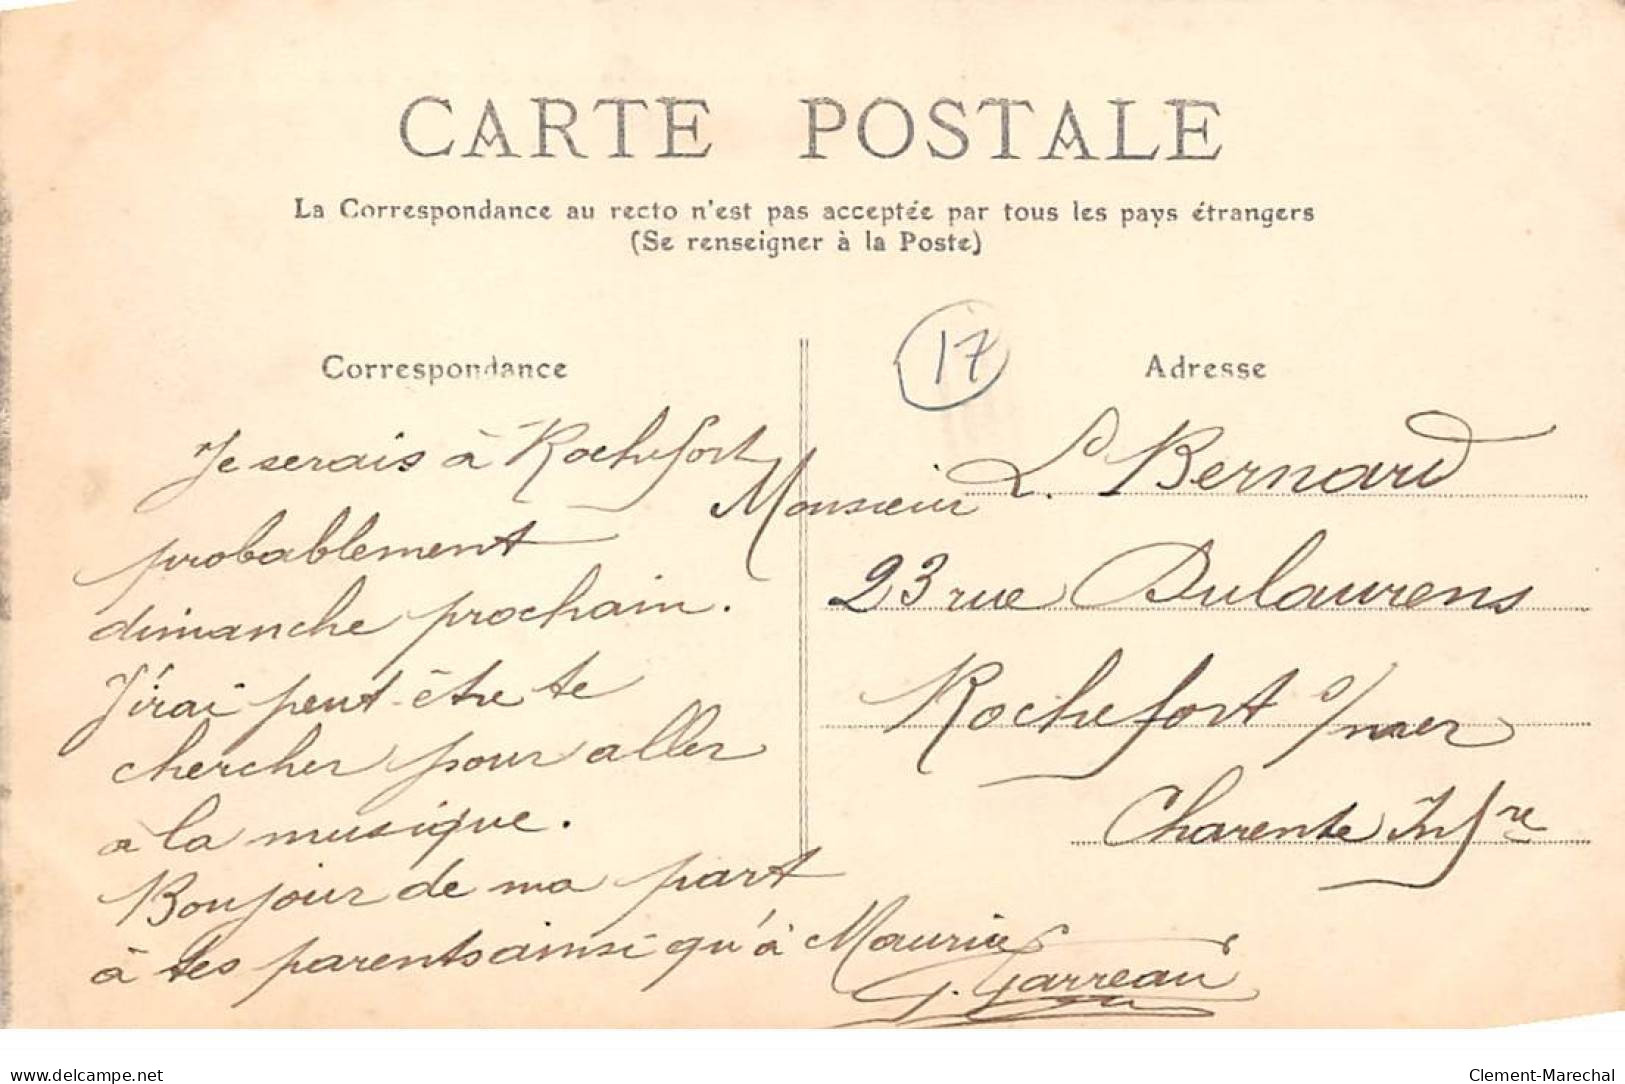 CARTE POSTALE
La Correspondance au recto n'est pas acceptée par tous les pays étrangers
(Se renseigner à la Poste)
Correspondance
Je serais à Rochefort
probablement
dimanche prochain.
J'irai peut-être te
chercher pour aller
a la musique.
Bonjour de ma part
à tes parents ainsi qu'à Maurice
G. Garreau
17
Adresse
Monsieur L. Bernard
23 rue Dulaurens
Rochefort s/mer
Charente Infre
www.delcampe.net
Clement-Marechal